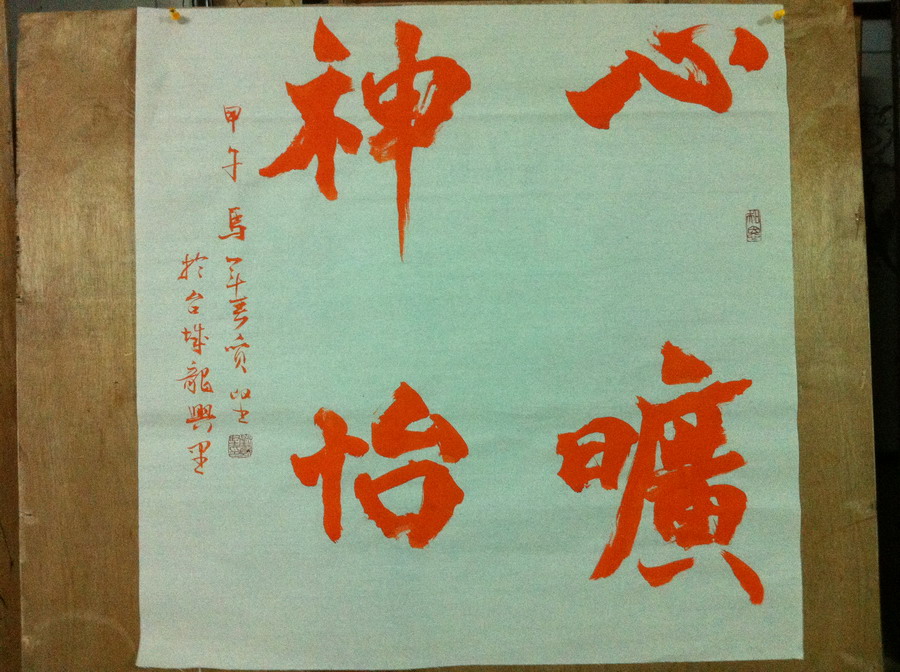 心曠
神怡
甲午馬年
於台城龍興里